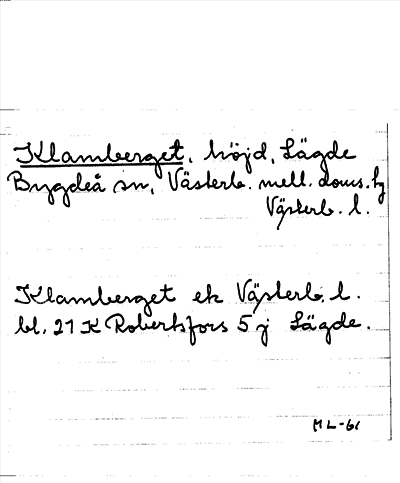 Klamberget, höjd, Lägde
Bygdeå sn, Västerb. mell. doms.
Västerb. l.
Klamberget ek Västerb. l.
bl. 21 K Robertsfors 5 j Lägde.
ML-61